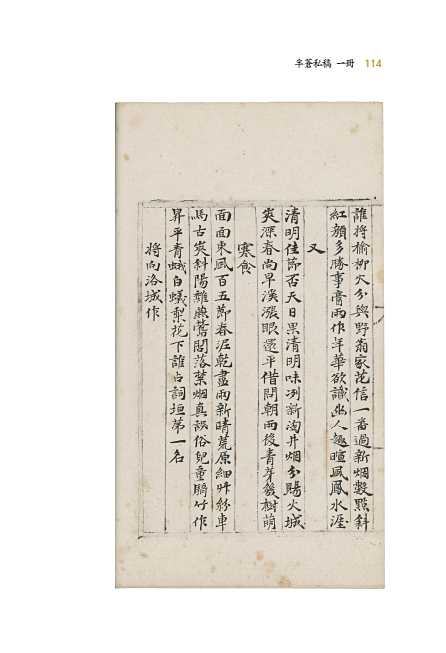 半蒼私稿 一冊 114
誰將榆柳火分與野翁家花信一番過新烟數點斜
紅顏多勝事膏雨作年華欲識幽人趣暄風鳳水涯
又
清明佳節否天日果清明味冽新淘井烟分賜火城
爽深春尚早溪漲眼還平借問朝雨後青芽幾樹萌
寒食
面面東風百五節春泥乾盡雨新晴荒原細艸紛車
馬古斜陽雜鶯閣落禁烟真誤俗兒童騎竹作
昇平青蛾白蟻梨花下誰占詞垣第一名
將向洛城作